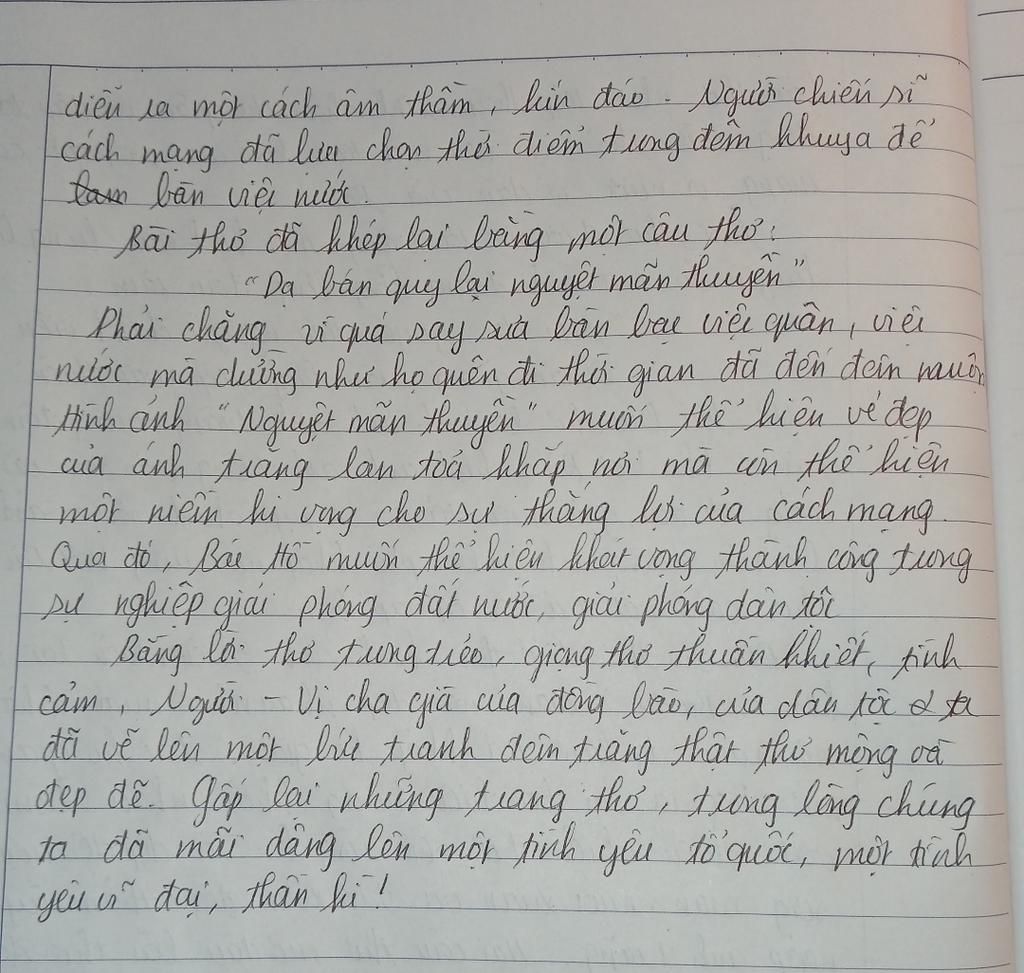 diễn ra một cách âm thầm, kín đáo. Người chiến sĩ
cách mạng đã lựa chọn thời điểm trong đêm khuya để
bàn việc nước.
Bài thơ đã khép lại bằng một câu thơ:
"Dạ bán quy lại nguyệt mãn thuyền"
Phải chăng vì quá say sưa bàn bạc việc quân, việc
nước mà dường như họ quên đi thời gian đã đến đêm muộn
Hình ảnh "Nguyệt mãn thuyền" muốn thể hiện vẻ đẹp
của ánh trăng lan toả khắp nơi mà còn thể hiện
một niềm hi vọng cho sự thắng lợi của cách mạng.
Qua đó, Bác Hồ muốn thể hiện khát vọng thành công trong
sự nghiệp giải phóng đất nước, giải phóng dân tộc
Bằng lời thơ trong trẻo, giọng thơ thuần khiết, tình
cảm, Người - Vị cha già của đồng bào, của dân tộc ta
đã vẽ lên một bức tranh đêm trăng thật thơ mộng và
đẹp đẽ. Gấp lại những trang thơ, trong lòng chúng
ta đã mãi dâng lên một tình yêu tổ quốc, một tình
yêu vĩ đại, thần kì!